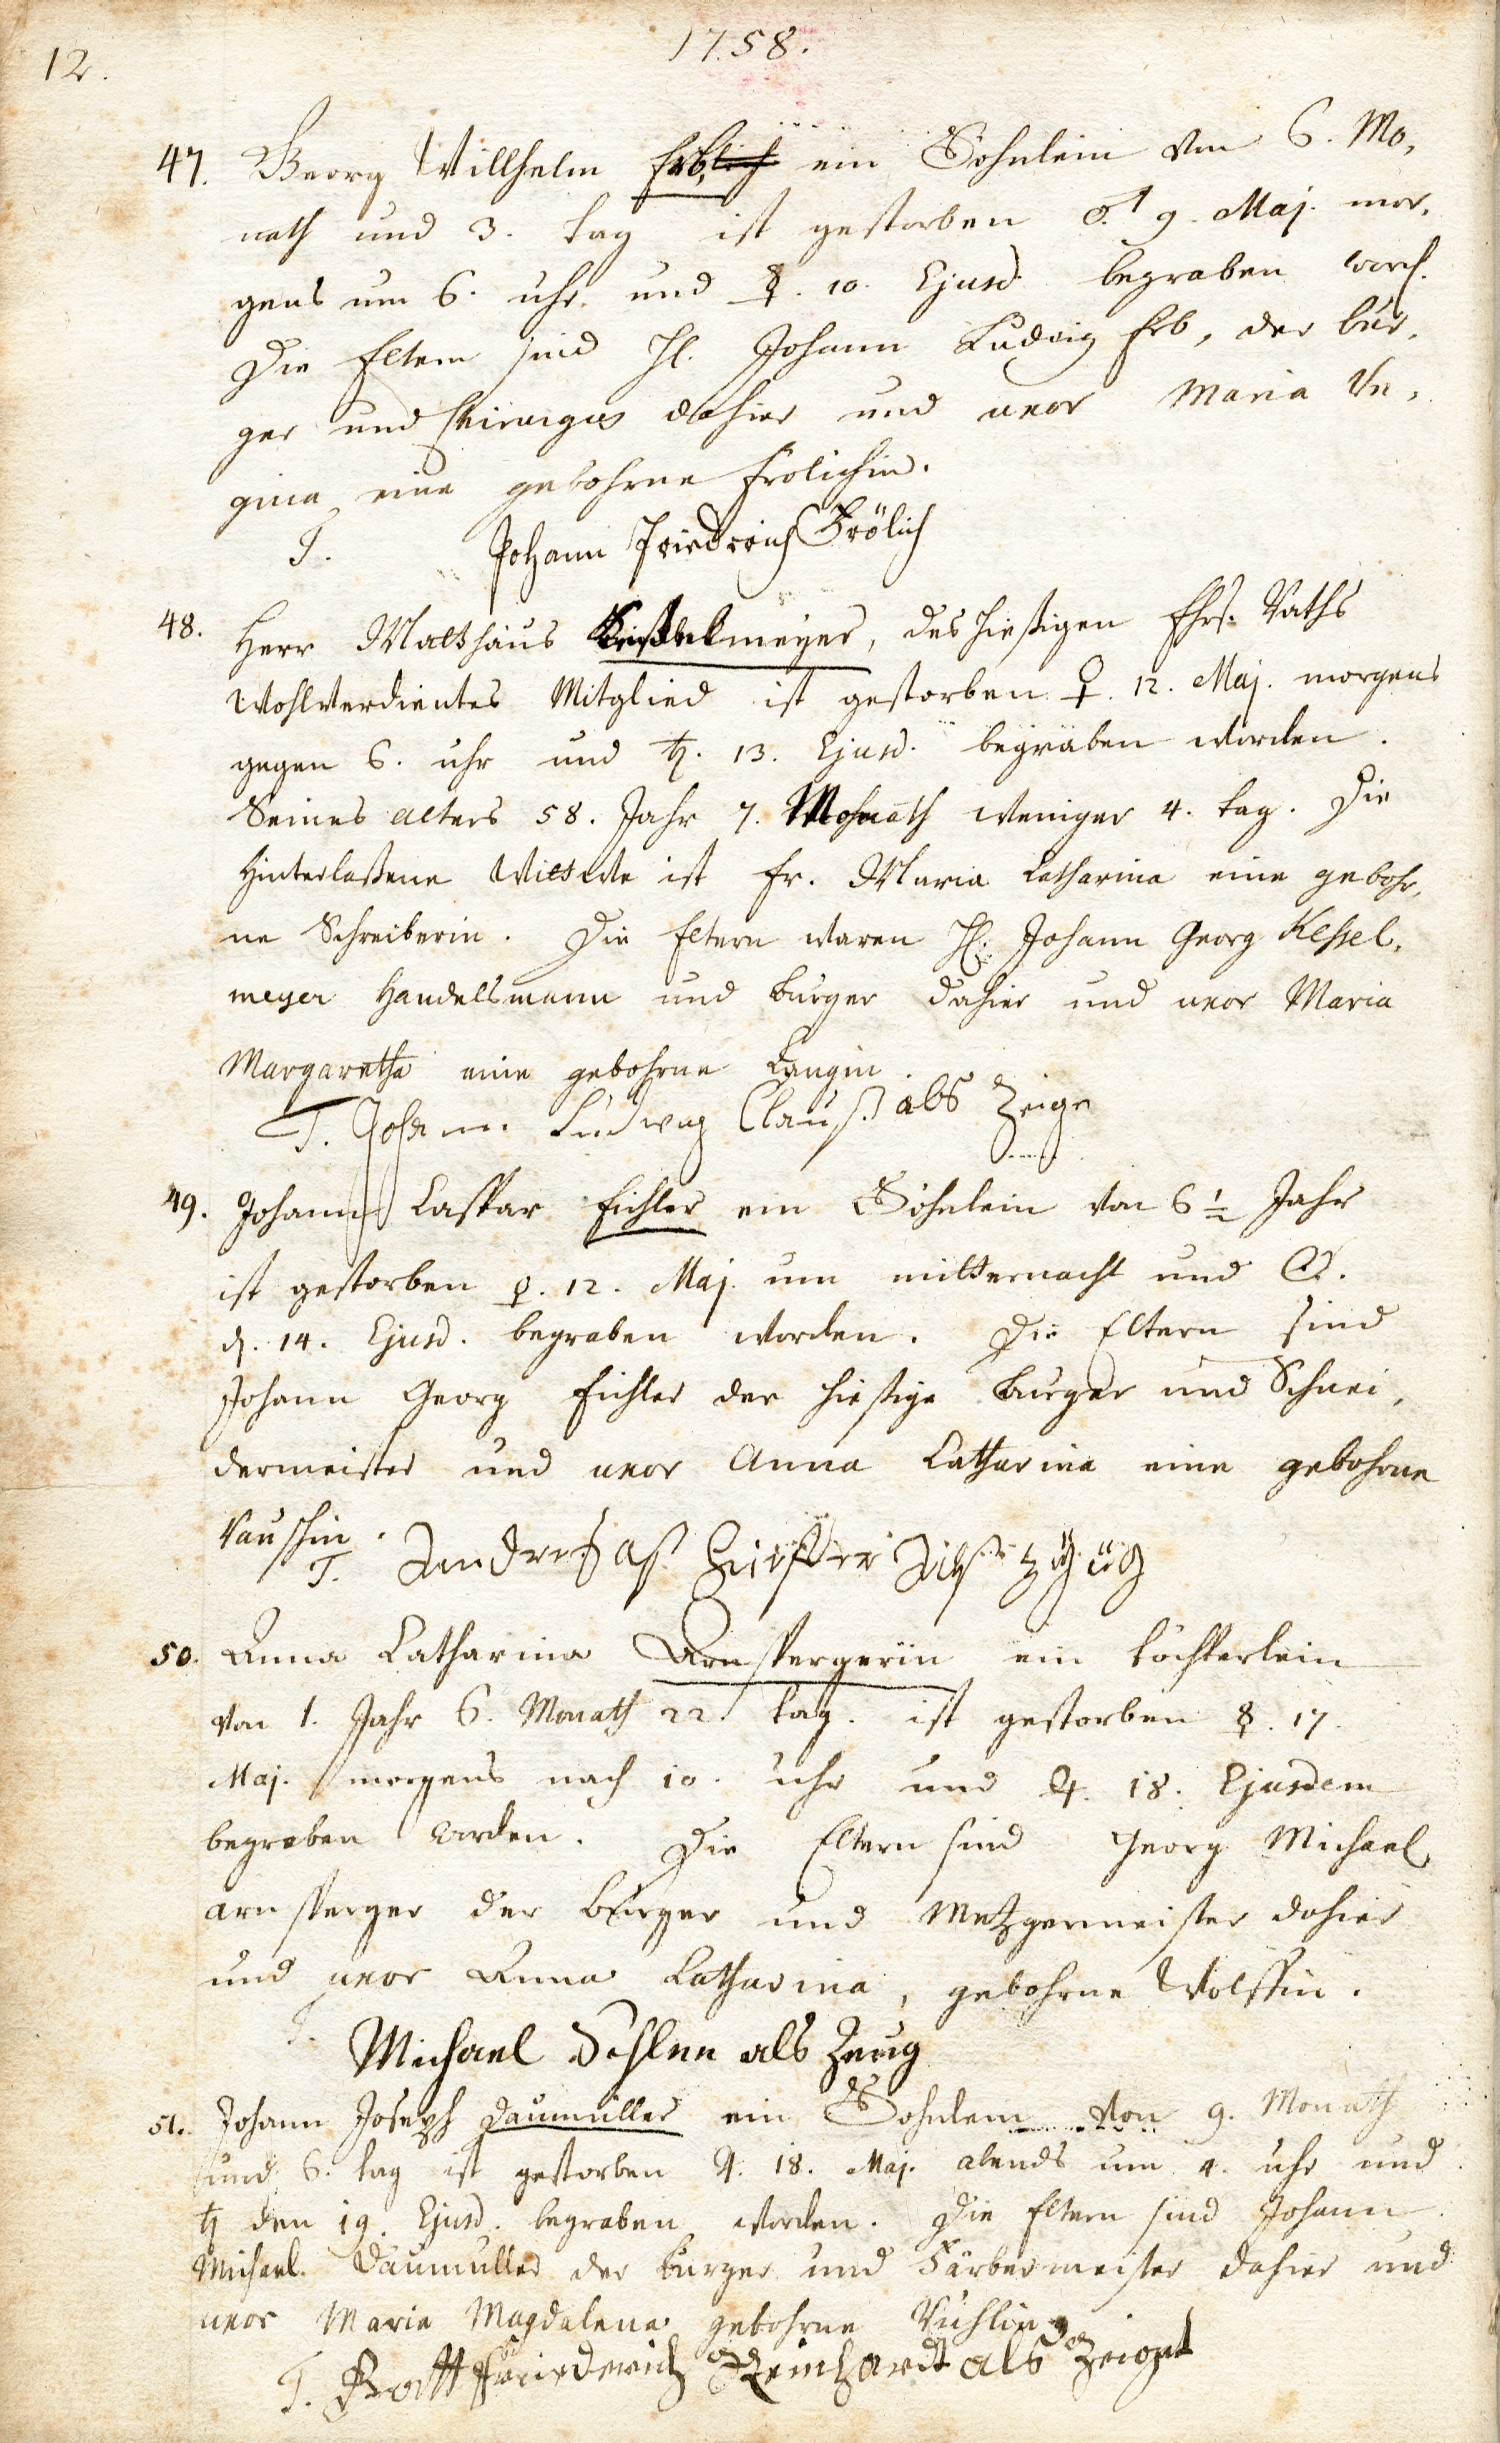 12.
1758.
47. Georg Willhelm Erb, ein Söhnlein von 6. Mo,
nath und 3. tag ist gestorben ♂ 9. Maj. mor,
gens um 6. uhr und ☿. 10. Ejusd. begraben word.
Die Eltern sind H. Johann Ludwig Erb, der bur,
ger und Chirurgus dahier und uxor Maria
gina eine gebohrne Frölichin.
T. Johann Friedrich Frölich
48. Herr Matthäus Keßelmeyer, des hießigen Ehrs. Raths
wohlverdientes Mitglied ist gestorben ♀. 12. Maj. morgens
gegen 6. uhr und ♄. 13. Ejusd. begraben worden.
Seines alters 58. Jahr 7. Monath weniger 4. tag. Die
Hinterlaßene Wittwe ist Fr. Maria Catharina eine gebohr,
ne Schreiberin. Die Eltern waren H. Johann Georg Keßel,
meyer Handelsmann und burger dahier und uxor Maria
Margaretha eine gebohrne Langin.
T. Johann Ludwig Clauß als Zeige
49. Johann Caspar Eichler ein Söhnlein von 6 1/2 Jahr
ist gestorben ♀. 12. Maj. um mitternacht und ☉.
d. 14. Ejusd. begraben worden. Die Eltern sind
Johann Georg Eichler der hießige burger und Schnei,
dermeister und uxor Anna Catharina eine gebohrne
Rauschin.
T. Andreas
50. Anna Catharina Arnspergerin ein töchterlein
von 1. Jahr 6. Monath 22. tag. ist gestorben ☿. 17.
Maj. morgens nach 10. uhr und ♃. 18. Ejusdem
begraben worden. Die Eltern sind Georg Michael
arnsperger der burger und Metzgermeister dahier
und uxor Anna Catharina, gebohrne Wolffin.
T. Michael als Zeug
51. Johann Joseph Daumüller ein Söhnlein von 9. Monath
und 6. tag ist gestorben ♃. 18. Maj. abends um 4. uhr und
♄ den 19. Ejusd. begraben worden. Die Eltern sind Johann
Michael Daumüller der burger und Färbermeister dahier und
uxor Maria Magdalena gebohrne
T. Gottfriederich Reinhardt als Zeiget